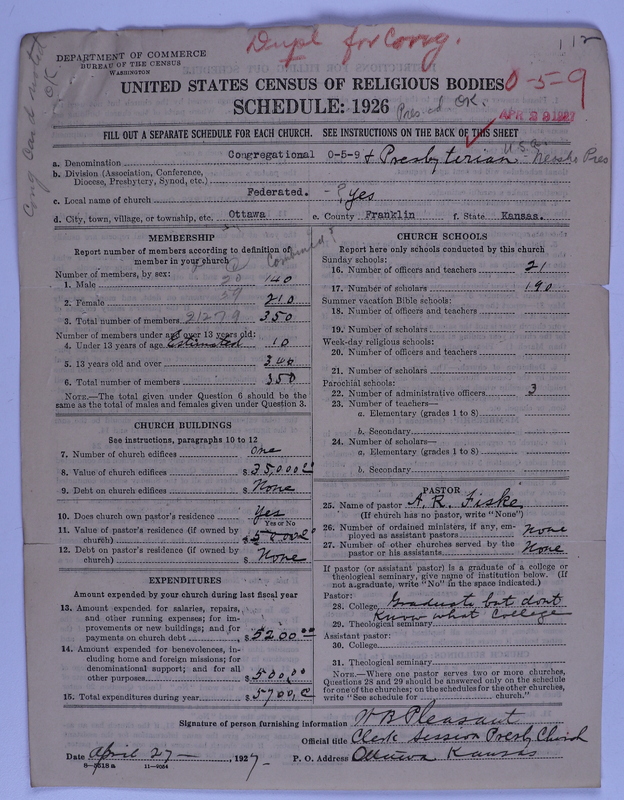 Dupl for Cong.
112
DEPARTMENT OF COMMERCE
BUREAU OF THE CENSUS
WASHINGTON
Cong Card noted OK
UNITED STATES CENSUS OF RELIGIOUS BODIES 0-5-9
SCHEDULE: 1926 Pres. cd. OK.
FILL OUT A SEPARATE SCHEDULE FOR EACH CHURCH. SEE INSTRUCTIONS ON THE BACK OF THIS SHEET
a. Denomination Congregational 0-5-9 & Presbyterian U.S.A. Neosho Pres
b. Division (Association, Conference,
Diocese, Presbytery, Synod, etc.)
c. Local name of church Federated. - ?, yes
d. City, town, village, or township, etc. Ottawa e. County Franklin f. State Kansas.
MEMBERSHIP
Report number of members according to definition of
member in your church
Combined
Number of members, by sex:
1. Male 140
2. Female 210
3. Total number of members 350
Number of members under and over 13 years old:
4. Under 13 years of age Estimated 10
5. 13 years old and over 340
6. Total number of members 350
NOTE.—The total given under Question 6 should be
same as the total of males and females given under Question 3.
CHURCH BUILDINGS
See instructions, paragraphs 10 to 12
7. Number of church edifices one
8. Value of church edifices $ 35000 00
9. Debt on church edifices $ None
10. Does church own pastor's residence? Yes
Yes or No
11. Value of pastor's residence (if owned by
church) $
12. Debt on pastor's residence (if owned by
church) $ None
EXPENDITURES
Amount expended by your church during last fiscal year
13. Amount expended for salaries, repairs,
and other running expenses; for im-
provements or new buildings; and for
payments on church debt $ 5200 00
14. Amount expended for benevolences, in-
cluding home and foreign missions; for
denominational support; and for all
other purposes $ 500,00
15. Total expenditures during year $ 5700,
CHURCH SCHOOLS
Report here only schools conducted by this church
Sunday schools:
16. Number of officers and teachers 21
17. Number of scholars 190
Summer vacation Bible schools:
18. Number of officers and teachers
19. Number of scholars
Week-day religious schools:
20. Number of officers and teachers
21. Number of scholars
Parochial schools:
22. Number of administrative officers 3
23. Number of teachers—
a. Elementary (grades 1 to 8)
b. Secondary
24. Number of scholars—
a. Elementary (grades 1 to 8)
b. Secondary
PASTOR
25. Name of pastor A. R. Fiske
(If church has no pastor, write "None")
26. Number of ordained ministers, if any, em-
ployed as assistant pastors none
27. Number of other churches served by the
pastor or his assistants None
If pastor (or assistant pastor) is a graduate of a college or
theological seminary, give name of institution below. (If
not a graduate, write "No" in the space indicated.)
Pastor:
28. College Graduate but dont
Know what College
29. Theological seminary
Assistant pastor:
30. College
31. Theological seminary
NOTE.—Where one pastor serves two or more churches,
Questions 28 and 29 should be answered only on the schedule
for one of the churches; on the schedules for the other churches,
write "See schedule for church."
Signature of person furnishing information W B Pleasant
Official title Clerk Session Presby Church
Date April 27 -, 1927 - P. O. Address Ottawa Kansas
8-5518a 11-9034